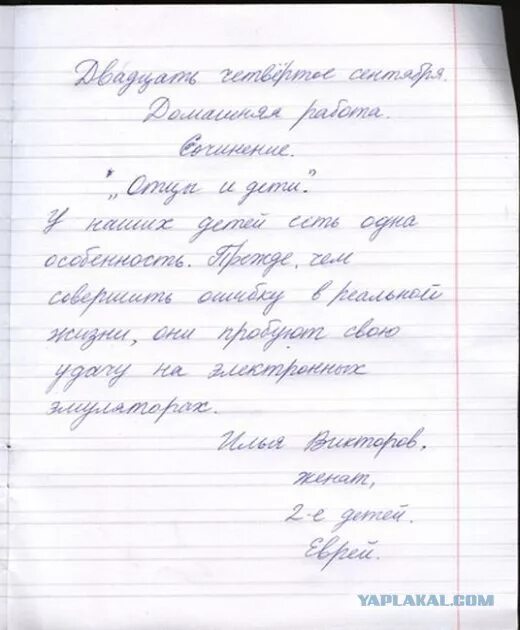 Двадцать четвёртое сентября.
Домашняя работа.
Сочинение.
"Отцы и дети".
У наших детей есть одна
особенность. Прежде, чем
совершить ошибку в реальной
жизни, они пробуют свою
удачу на электронных
эмуляторах.
Илья Викторов,
женат,
2-е детей.
Еврей.
YAPLAKAL.COM